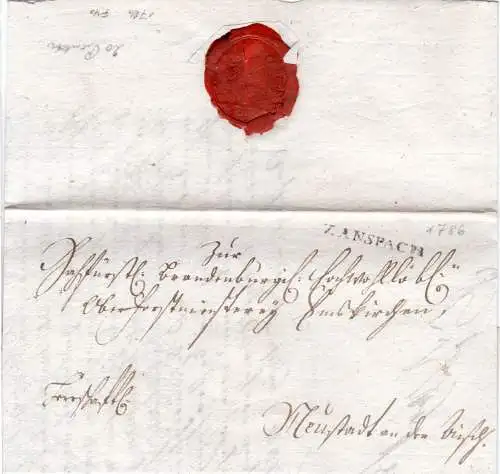 Z. ANSPACH
1786
Zur
Hochfürstl: Brandenburgisch: Hochwohllöbl:
Oberforstmeisterey Emskirchen,
Herrschaftl:
Neustadt an der Aisch.